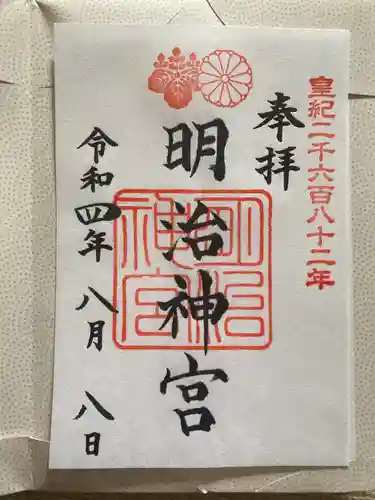 皇紀二千六百八十二年
奉拝
明治神宮
明治神宮
令和四年八月八日